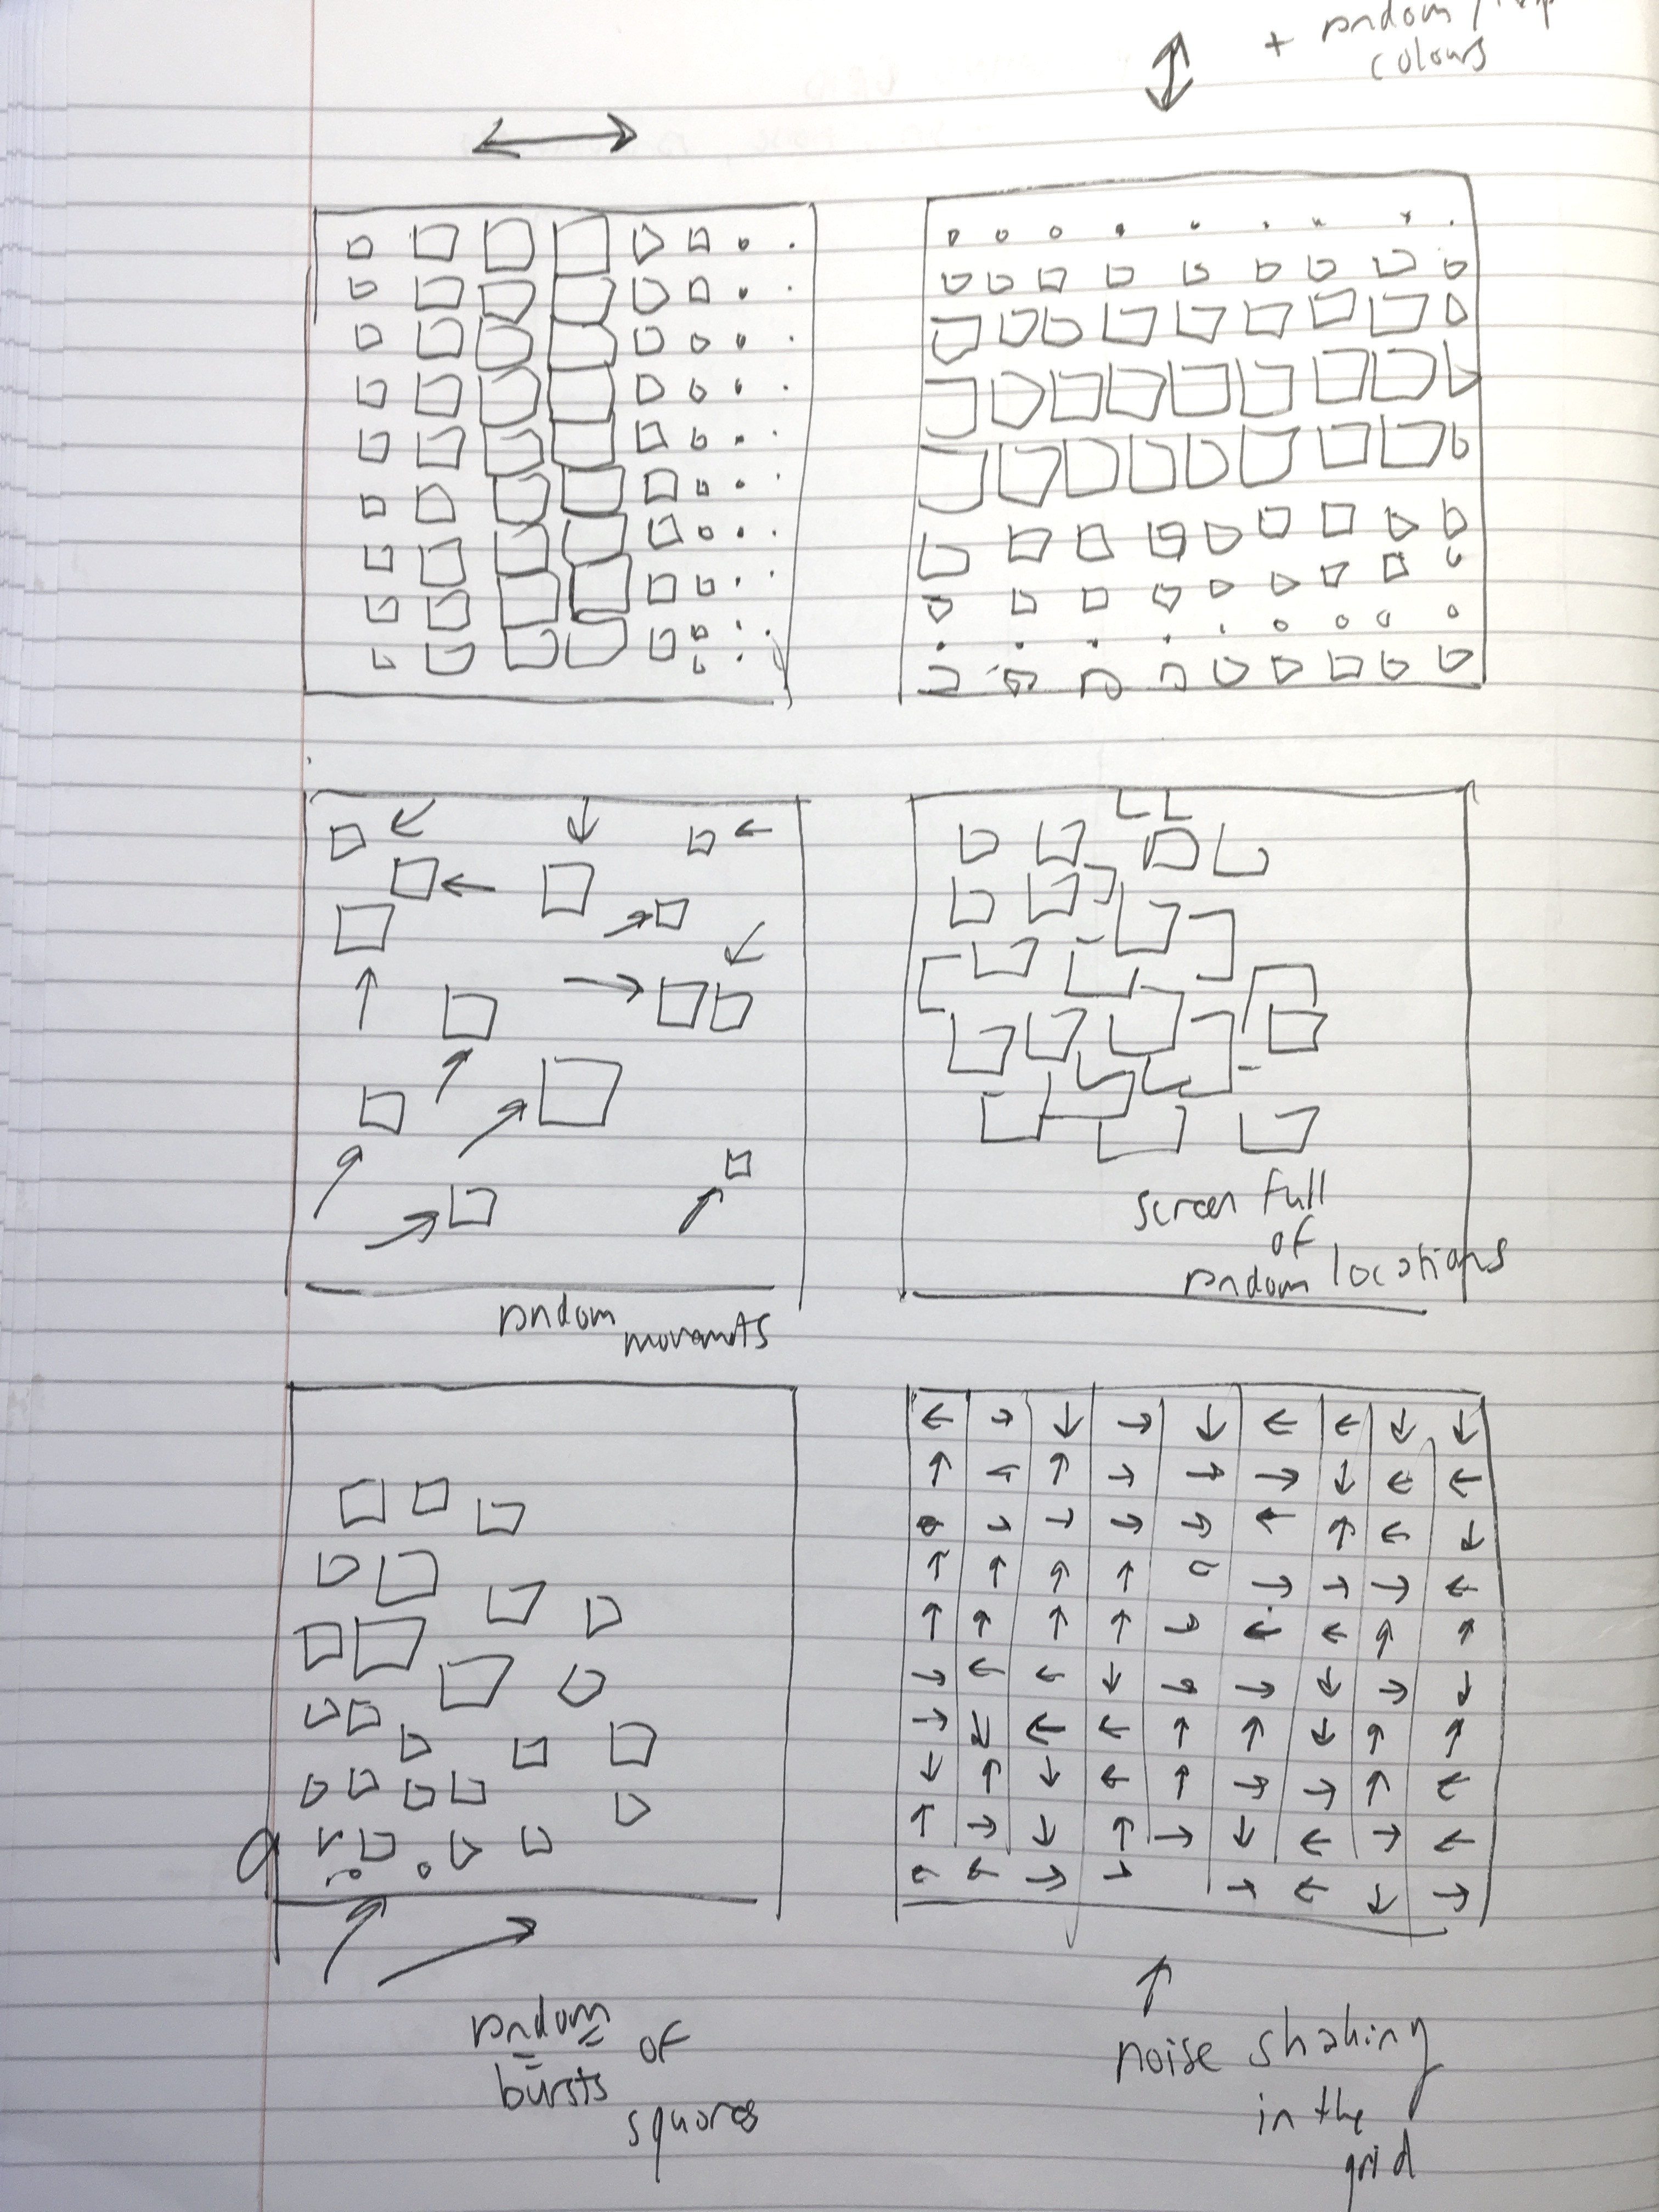 + random /
colours
random
movements
screen full
of
random locations
random
bursts of
squares
noise shaking
in the
grid